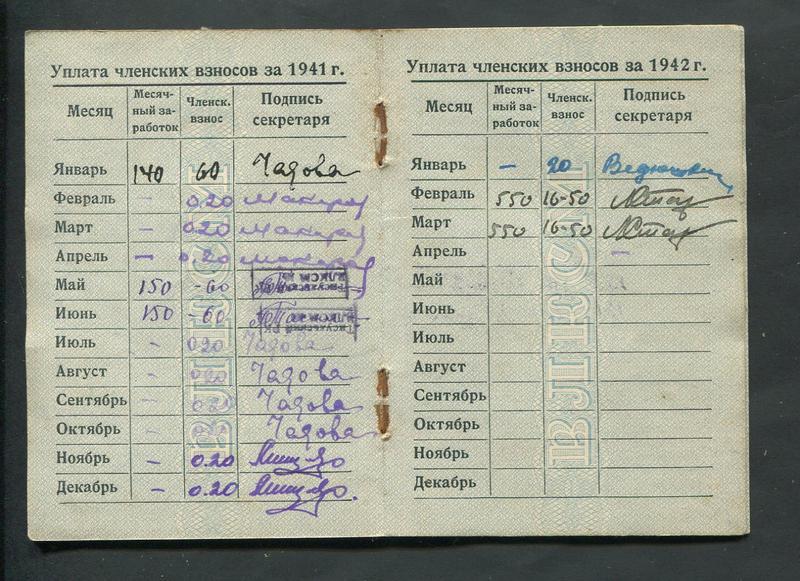 Уплата членских взносов за 1941 г.
Месяц Месяч-ный за-работок Членск. взнос Подпись секретаря
Январь 140 -60 Чадова
Февраль - 0.20
Март - 0.20
Апрель - 0.20
Май 150 -60
Июнь 150 -60
Июль - 0.20 Чадова
Август - 0.20 Чадова
Сентябрь - 0.20 Чадова
Октябрь - 0.20 Чадова
Ноябрь - 0.20
Декабрь - 0.20
ВЛКСМ
Уплата членских взносов за 1942 г.
Месяц Месяч-ный за-работок Членск. взнос Подпись секретаря
Январь - 20
Февраль 550 16-50
Март 550 16-50
Апрель -
Май
Июнь
Июль
Август
Сентябрь
Октябрь
Ноябрь
Декабрь
ВЛКСМ